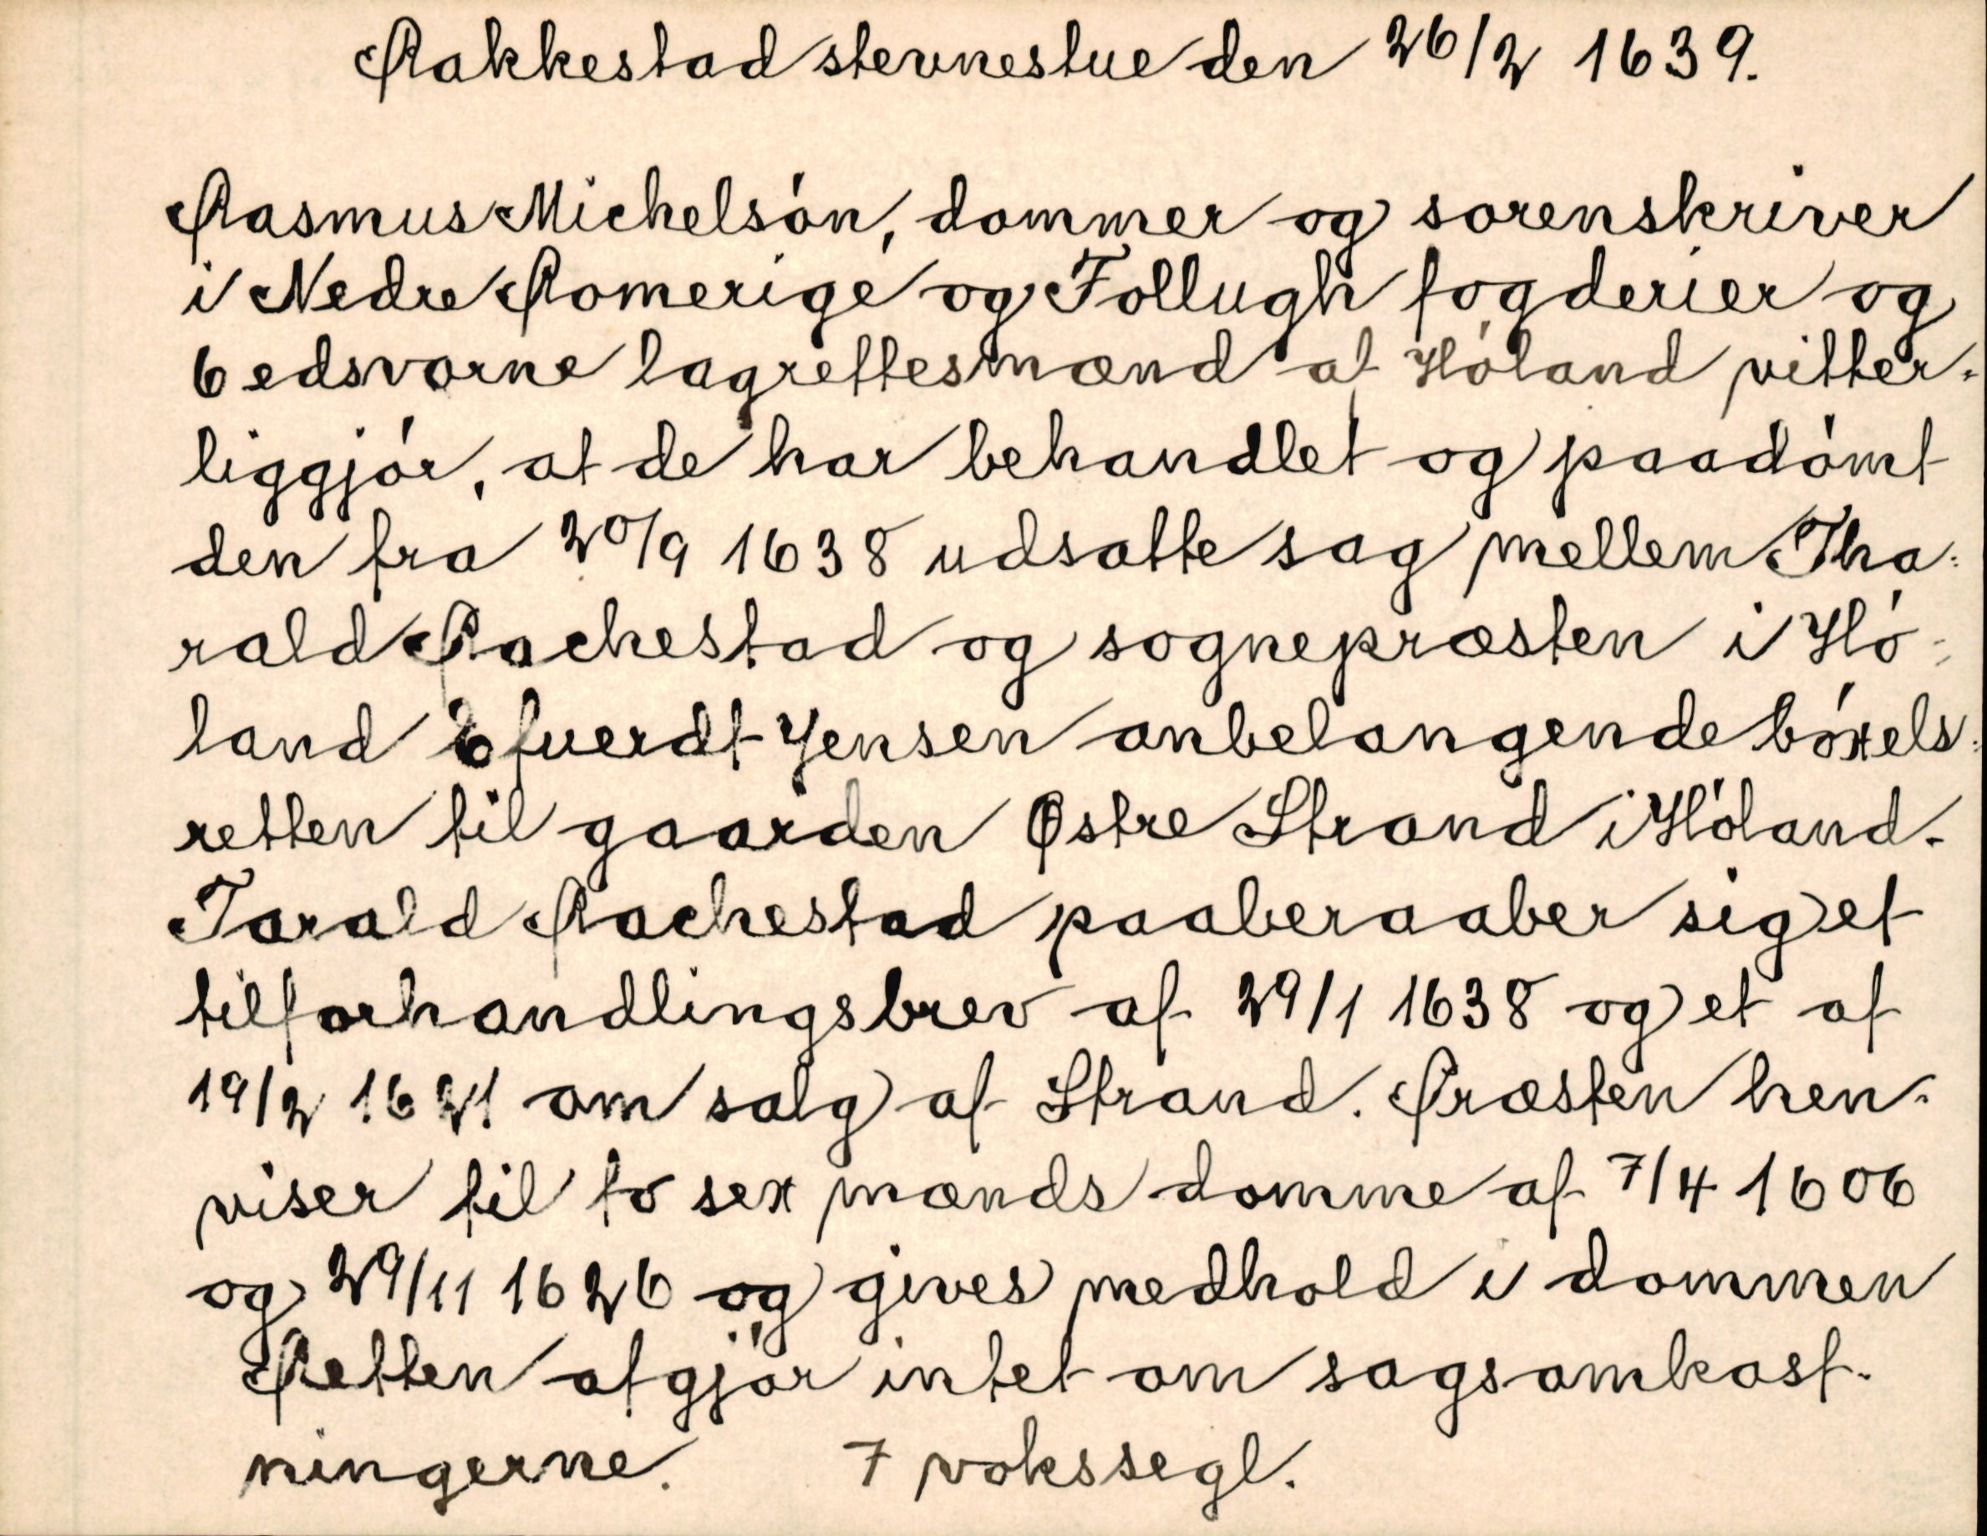 Rakkestad stevnestue den 26/2 1639.
Rasmus Michelsón, dommer og sorenskriver
i Nedre Romerige og Follugh fogderier og
6 edsvorne lagrettesmænd af Hóland vitter-
liggjór, at de har behandlet og paadómt
den fra 20/9 1638 udsatte sag mellem Tha-
rald Rachestad og sognepræsten i Hó-
land Efuerdt Jensen anbelangende bóxels-
retten til gaarden Østre Strand i Hóland.
Tarald Rachestad paaberaaber sig et
tilforhandlingsbrev af 29/1 1638 og et af
19/2 1621 om salg af Strand. Præsten hen-
viser til to sex mænds domme af 7/4 1606
og 29/11 1626 og gives medhold i dommen
Retten afgjör intet om sagsomkost-
ningerne. 7 vokssegl.